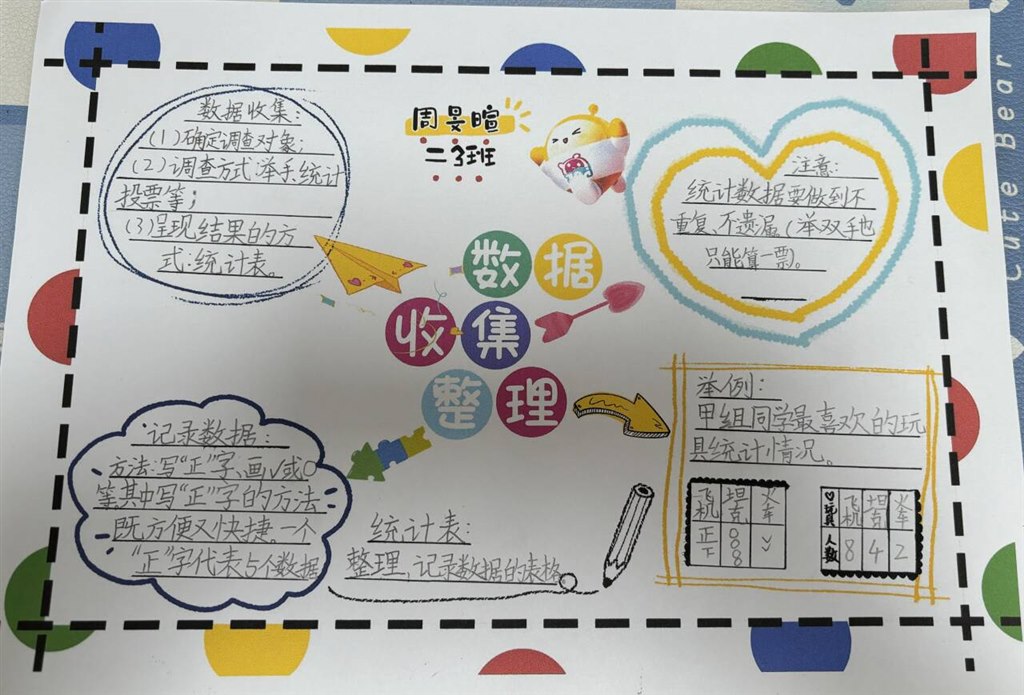 数据收集:
(1)确定调查对象;
(2)调查方式:举手,统计
投票等;
(3)呈现结果的方
式:统计表。
周旻暄
二3班
注意:
统计数据要做到不
重复,不遗漏(举双手也
只能算一票。
数据
收集
整理
记录数据:
方法:写“正”字,画√或○
等,其中写“正”字的方法
既方便又快捷。一个
“正”字代表5个数据
统计表:
整理,记录数据的表格
举例:
甲组同学最喜欢的玩
具统计情况。
飞机 坦克 火车
正
玩具 飞机 坦克 火车
人数 8 4 2
Cute Bear